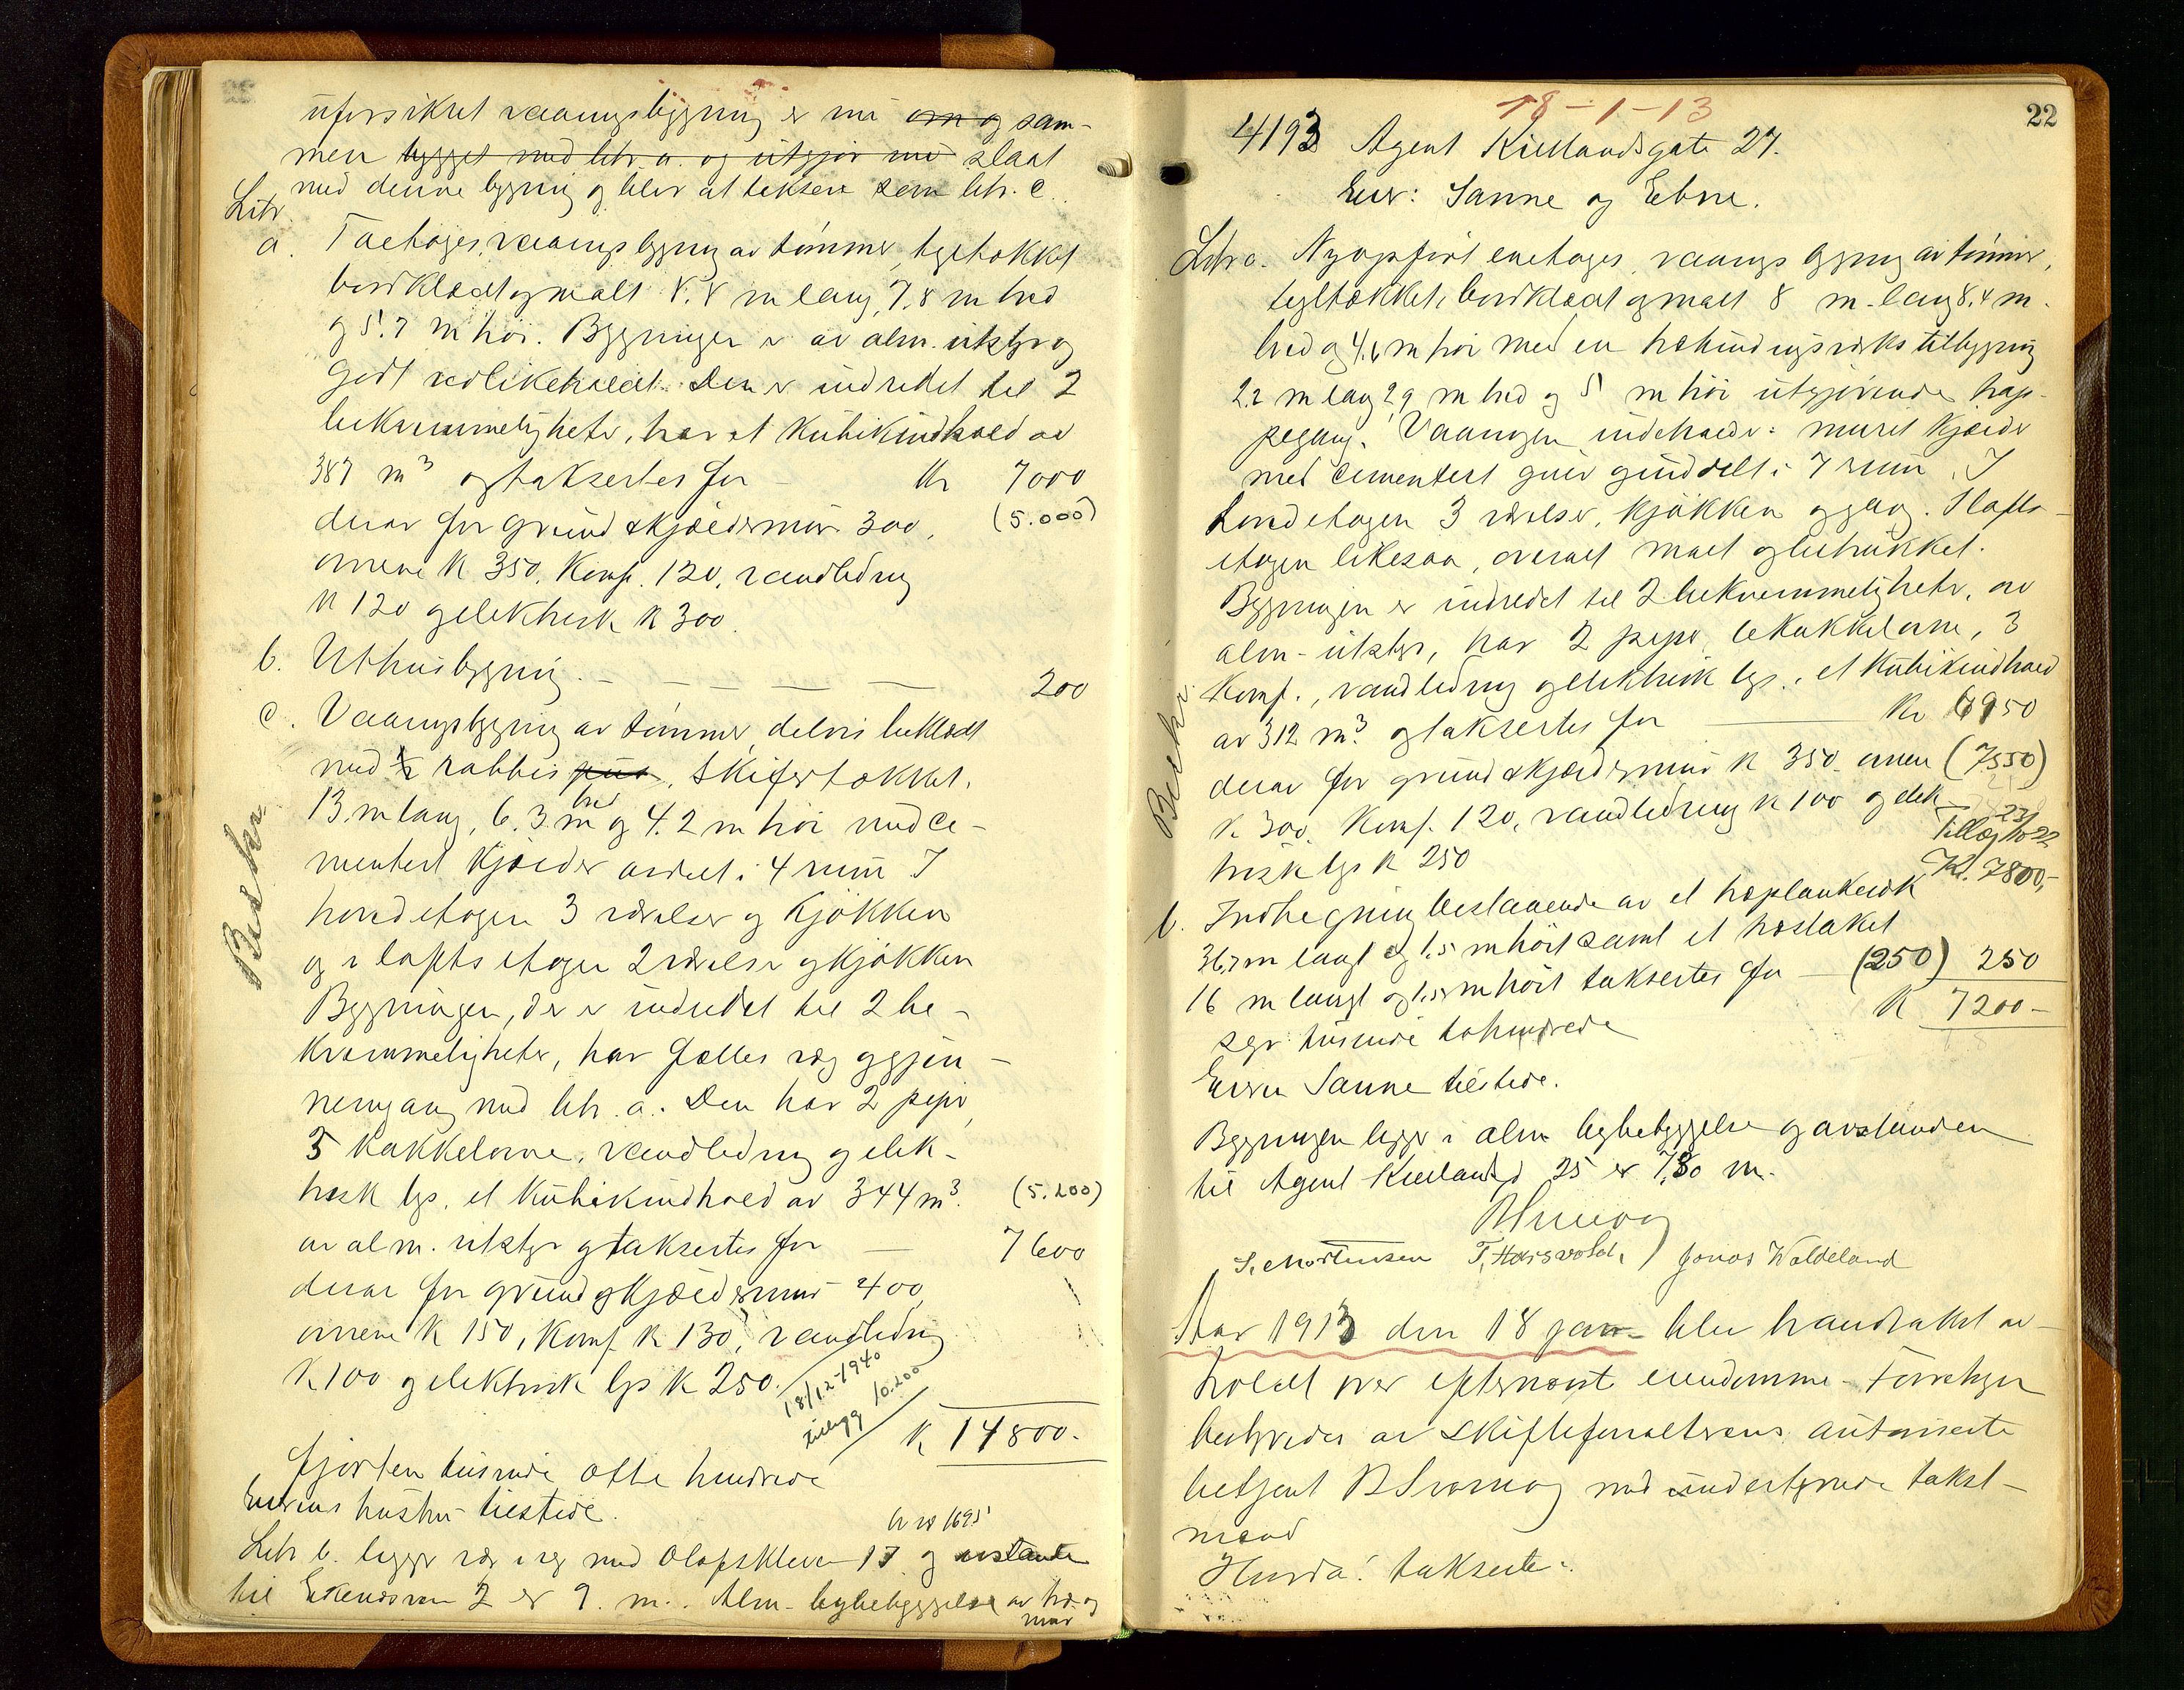 uforsikret vaaningsbygning er nu om og sam-
men bygget med litr. a. og utgjør nu slaat
med denne bygning og blir at taksere som litr. c.
Litr.
a. Toetages vaaningsbygning av tømmer, tegltækket
bordklædt og malt 8.8 m lang, 7,8 m bred
og 5.7 m høi. Bygningen er av alm. utstyr og
godt vedlikeholdt. Den er indredet til 2
bekvemmeligheter, har et kubikindhold av
387 m³ og takseres for - Kr 7000
derav for grund & kjældermur 300, (5.000)
ovnene K 350, Komf. 120, vandledning
K 120 og elektrisk K 300.
b. Uthusbygning. - - - - 200
c. Vaaningsbygning av tømmer, delvis beklædt
med rabbis puts, skifertækket,
13 m lang, 6.3 m bred og 4.2 m høi med ce-
mentert kjælder avdelt i 4 rum I
hovedetagen 3 værelser og kjøkken
og i loftsetagen 2 værelser og kjøkken
Bygningen, der er indredet til 2 be-
kvemmeligheter, har fælles væg og gjen-
nemgang med litr. a. Den har 2 piper,
5 kakkelovne, vandledning og elek-
trisk lys, et kubikindhold av 344 m³. (5.200)
av alm. utstyr og takseres for - 7600
derav for grund og kjældermur 400,
ovnene K 150, Komf K 130, vandledning
K 100 og elektrisk lys K 250.
18/12-1940
tillegg 10.200
K 14800.-
fjorten tusinde otte hundrede
Eierens hustru tilstede.
br no 1695
Litr b. ligger væg i væg med Olafskleven 17 og avstanden
til 2 er 9 m. Alm. bybebyggelse av træ og
mur
Beskr
22
18-1-13
4193 Agent Kiellandsgate 27.
Eier: Sanne og Ebne.
Litr a. Nyopført enetages vaaningsbygning av tømmer,
tegltækket, bordklædt og malt 8 m. lang 8,4 m.
bred og 4,6 m høi med en trebindingsverks tilbygning
2.2 m lang 2,9 m bred og 5 m høi utgjørende trap-
pegang. Vaaningen indeholder: muret kjælder
med cementert gulv og inddelt i 7 rum. I
hovedetagen 3 værelser, kjøkken og gang. I lofts-
etagen likesaa, overalt malt og betrukket.
Bygningen er indredet til 2 bekvemmeligheter, av
alm. utstyr, har 2 piper, 6 kakkelovne, 3
Komf., vandledning og elektrisk lys, et kubikindhold
av 312 m³. og takseres for - Kr 6950
derav for grund & kjældermur K 350 ovnene (7550)
K 300, Komf. 120, vandledning K 100 og elek-
trisk lys K 250
23/10 22
Tillæg
Kr. 7800,-
b. Indhegning bestaaende av et træplankeværk
36,7 m langt og 1.5 m høit samt et træstaket
16 m langt og 1.5 m høit takseres for - (250) 250
K 7200-
syv tusinde tohundrede
Eieren Sanne tilstede.
Bygningen ligger i alm bybebyggelse og avstanden
til Agent Kiellandsg 25 er 7,80 m.
S. Mortensen T. Hoisvold. Jonas Waldeland
Beskr.
Aar 1913 den 18 jan. blev brandtakst av-
holdt over efternævnte eiendomme. Forretningen
bestyredes av skifteforvalterens autoriserte
betjent B Svanaug med undertegnede takst-
mænd
Hvorda: takserte: